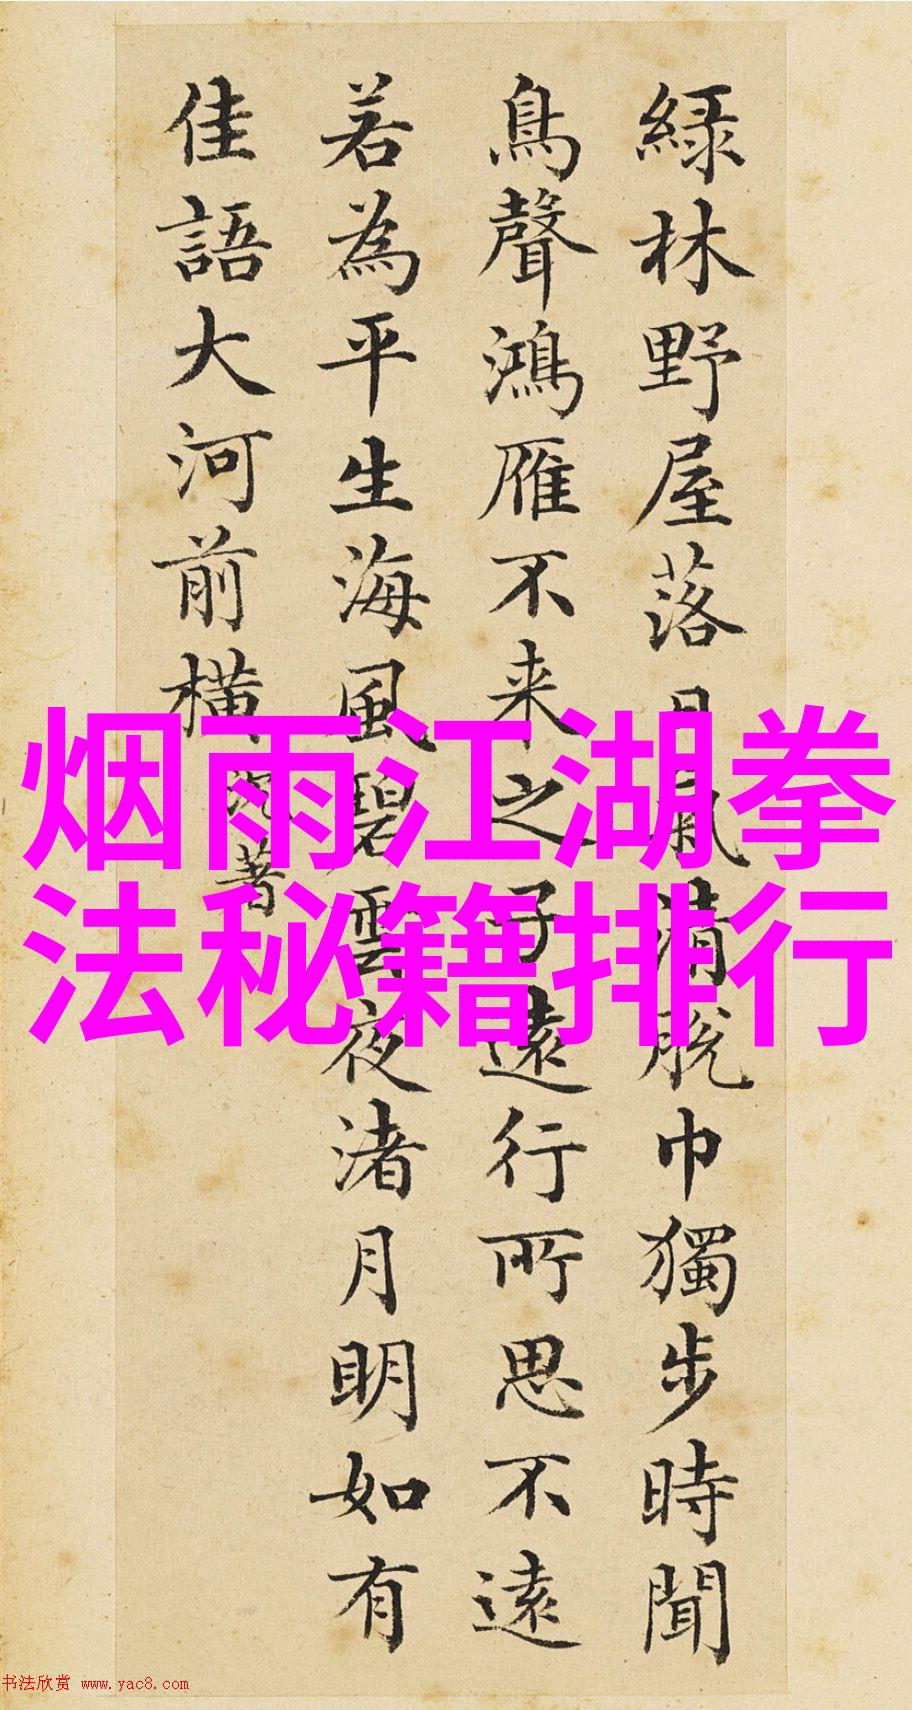 綠林野屋落日氣清脫巾獨步時聞
鳥聲鴻雁不来之子遠行所思不遠
若為平生海風碧雲夜渚月明如有
佳語大河前橫
烟雨江湖拳
法秘籍排行
书法欣赏 www.yac8.com